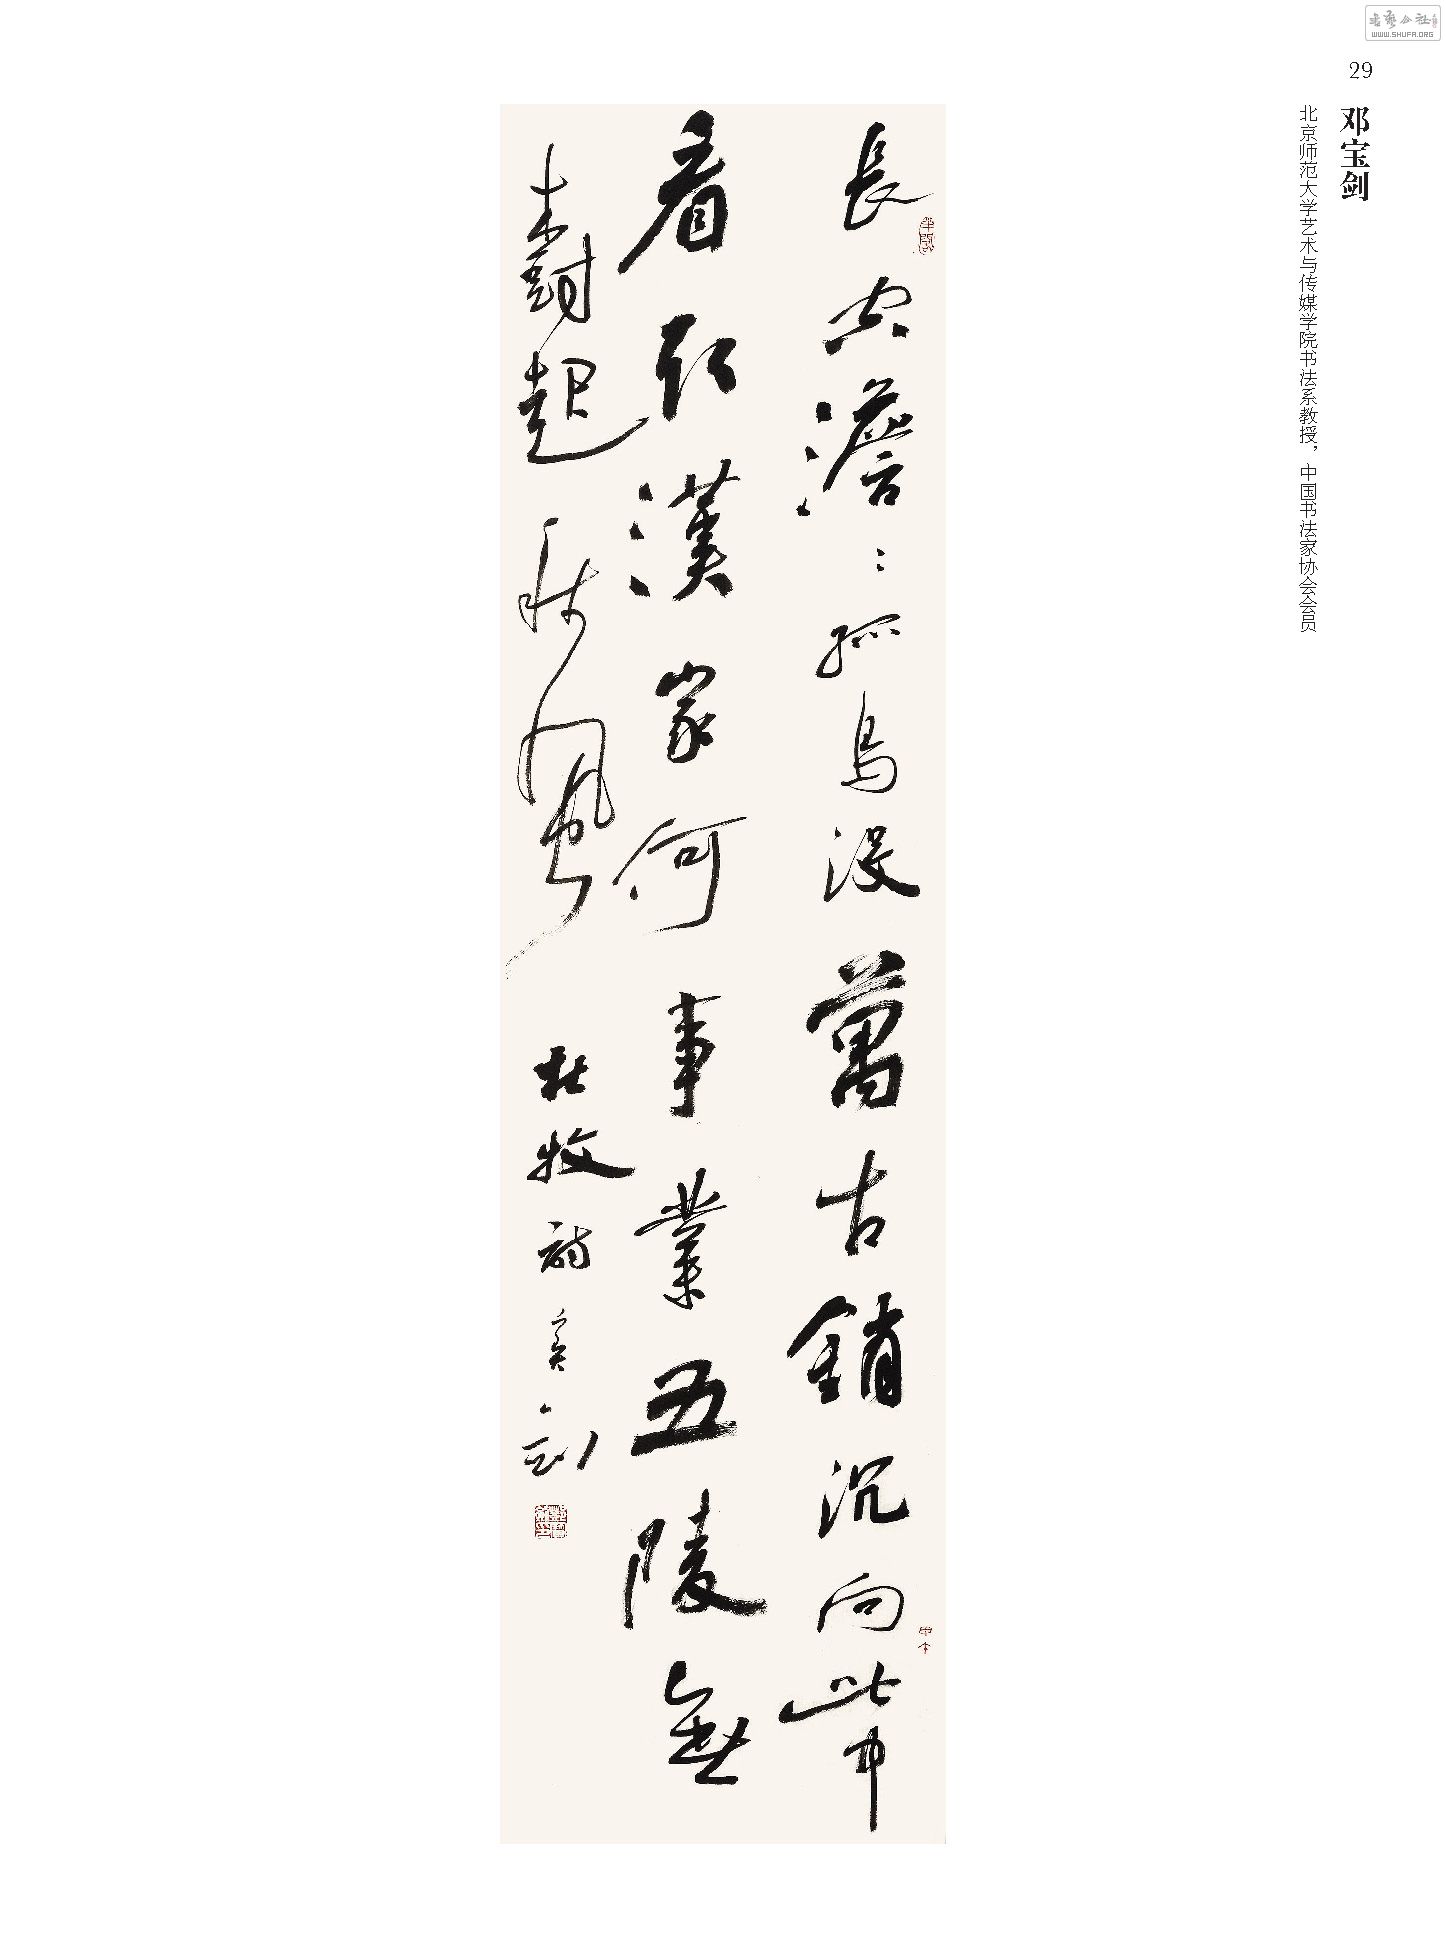 書藝公社
WWW.SHUFA.ORG
29
邓宝剑
北京师范大学艺术与传媒学院书法系教授，中国书法家协会会员
長空澹〻孤鳥没萬古銷沉向此中
看取漢家何事業五陵無
樹起秋風 杜牧詩 寶劍